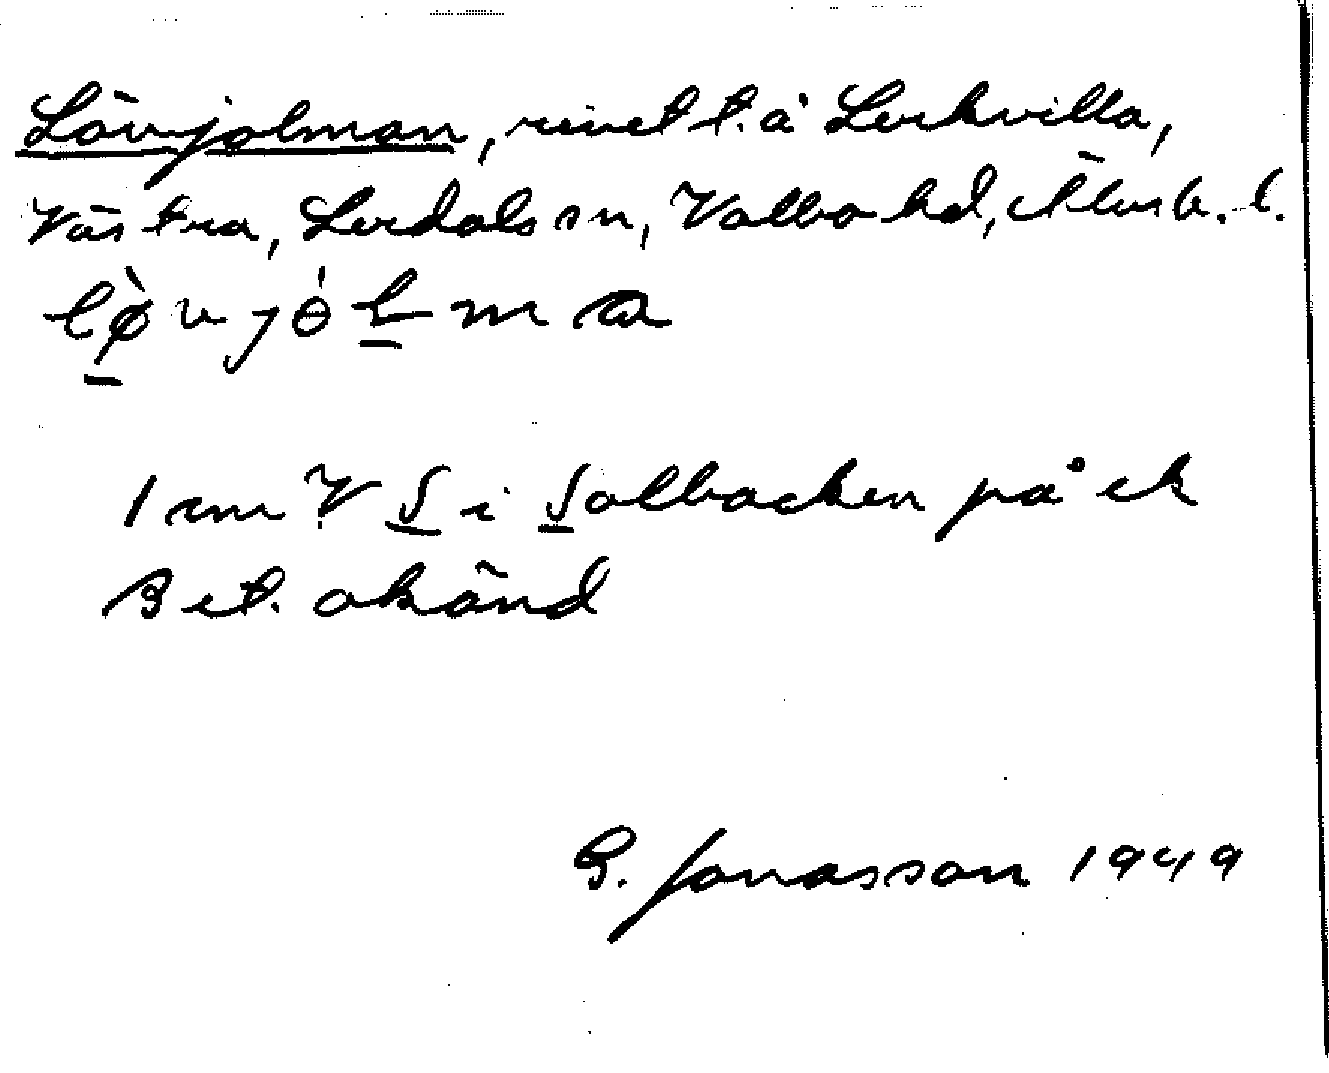 Lövjolman, rivet t. å Lerkvilla,
Västra, Lerdals sn, Valbo hd, Älvsb. l.
lø̀vjòlma
1 cm V S i Solbacken på ek
Bet. okänd
G. Jonasson 1949